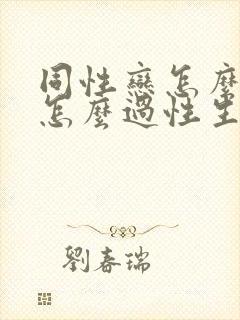 同性戀怎麼
怎麼過性生
劉春瑞